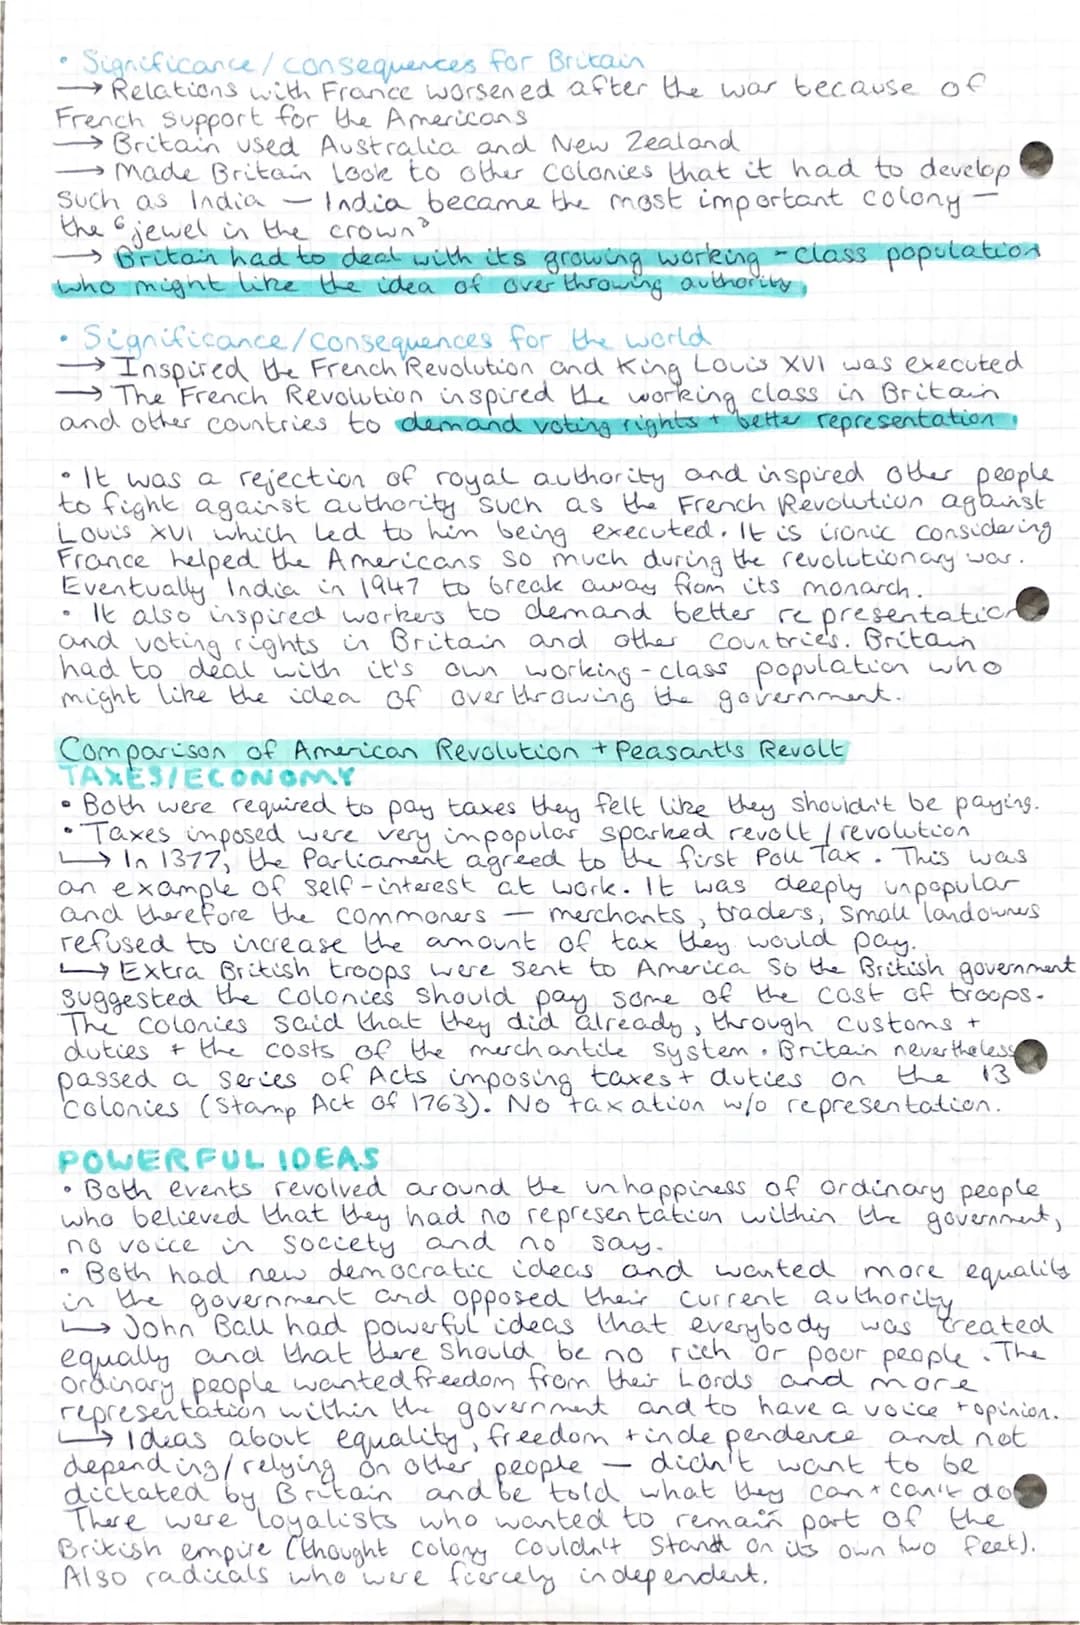 • Significance/consequences for Britain
→ Relations with France worsened after the war because of
French support for the Americans
→ Britain used Australia and New Zealand
→ Made Britain look to other colonies that it had to develop
such as India – India became the most important colony –
the "jewel in the crown"
→ Britain had to deal with its growing working-class population
who might like the idea of overthrowing authority.
• Significance/consequences for the world
→ Inspired the French Revolution and King Louis XVI was executed
→ The French Revolution inspired the working class in Britain
and other countries to demand voting rights + better representation.
• It was a rejection of royal authority and inspired other people
to fight against authority such as the French Revolution against
Louis XVI which led to him being executed. It is ironic considering
France helped the Americans so much during the revolutionary war.
Eventually India in 1947 to break away from its monarch.
• It also inspired workers to demand better representation
and voting rights in Britain and other countries. Britain
had to deal with it's own working-class population who
might like the idea of overthrowing the government.
Comparison of American Revolution + Peasant's Revolt
TAXES/ECONOMY
• Both were required to pay taxes they felt like they shouldn't be paying.
• Taxes imposed were very impopular sparked revolt/revolution
↳ In 1377, the Parliament agreed to the first Poll Tax. This was
an example of self-interest at work. It was deeply unpopular
and therefore the commoners – merchants, traders, small landowners
refused to increase the amount of tax they would pay.
↳ Extra British troops were sent to America so the British government
suggested the colonies should pay some of the cost of troops.
The colonies said that they did already, through customs +
duties + the costs of the merchantile system. Britain nevertheless
passed a series of Acts imposing taxes + duties on the 13
colonies (Stamp Act of 1763). No taxation w/o representation.
POWERFUL IDEAS
• Both events revolved around the unhappiness of ordinary people
who believed that they had no representation within the government,
no voice in society and no say.
• Both had new democratic ideas and wanted more equality
in the government and opposed their current authority
↳ John Ball had powerful ideas that everybody was created
equally and that there should be no rich or poor people. The
ordinary people wanted freedom from their Lords and more
representation within the government and to have a voice + opinion.
↳ Ideas about equality, freedom + independence and not
depending/relying on other people – didn't want to be
dictated by Britain and be told what they can + can't do
There were loyalists who wanted to remain part of the
British empire (thought colony couldn't stand on its own two feet).
Also radicals who were fiercely independent.